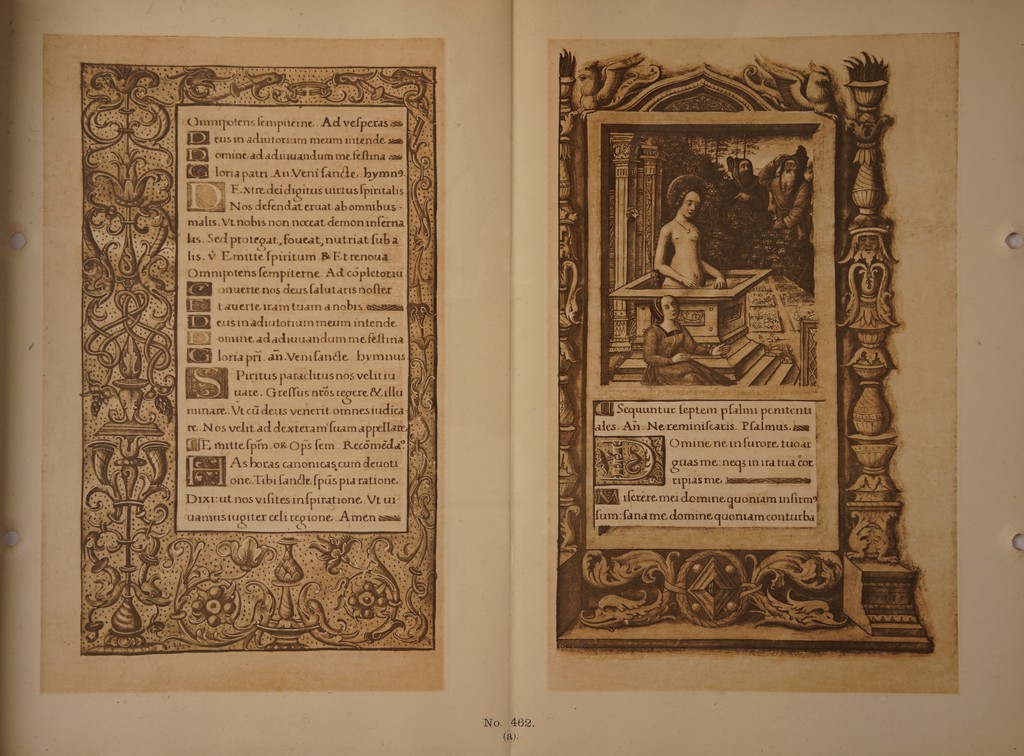 Omnipotens sempiterne. Ad vesperas
Deus in adiutorium meum intende
Domine ad adiuuandum me festina
Gloria patri. An. Veni sancte. hymn9.
DExtre dei digitus uirtus spiritalis
Nos defendat eruat ab omnibus
malis. Vt nobis non noceat demon inferna
lis. Sed protegat, foueat, nutriat sub a
lis. v̇ Emitte spiritum. R Et renoua
Omnipotens sempiterne. Ad cōpletoriū
Conuerte nos deus salutaris noster
Et auerte iram tuam a nobis.
Deus in adiutorium meum intende
Domine ad adiuuandum me festina
Gloria pr̄i. an̄. Veni sancte. hymnus
SPiritus paraclitus nos velit iu
uare. Gressus nr̄os regere & illu
minare. Vt cū deus venerit omnes iudica
re. Nos velit ad dexteram suam appellare
Emitte spm̄. oR Op̄s sem. Recōmēda°
HAs horas canonicas, cum deuoti
one. Tibi sancte spūs pia ratione.
Dixi: ut nos visites inspiratione. Vt ui
uamus iugiter celi regione. Amen
Sequuntur septem psalmi penitenti
ales. An̄. Ne reminiscaris. Psalmus.
DOmine ne in furore tuo ar
guas me: neq3 in ira tua cor
ripias me.
Miserere mei domine quoniam infirm9
sum: sana me domine quoniam conturba
No. 462.
(a).